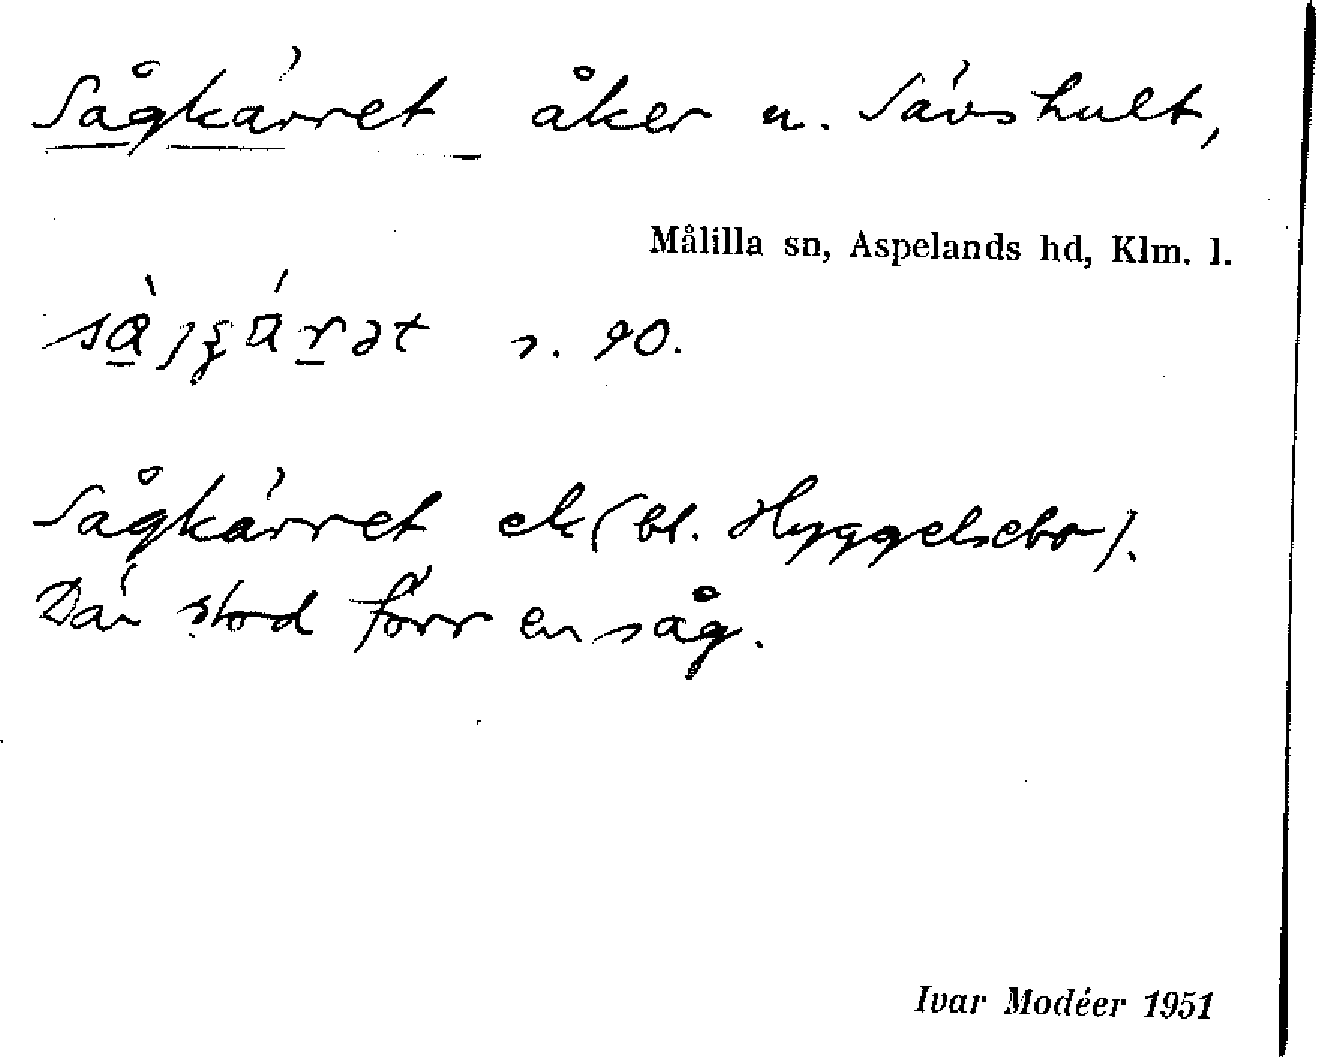 Sågkärret åker u. Sävshult,
Målilla sn, Aspelands hd, Klm. l.
s. 90.
Sågkärret ek (bl. Hyggelsebo).
Där stod förr en såg.
Ivar Modéer 1951